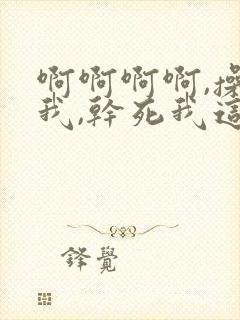 啊啊啊啊,操
我,幹死我這
鋒覺